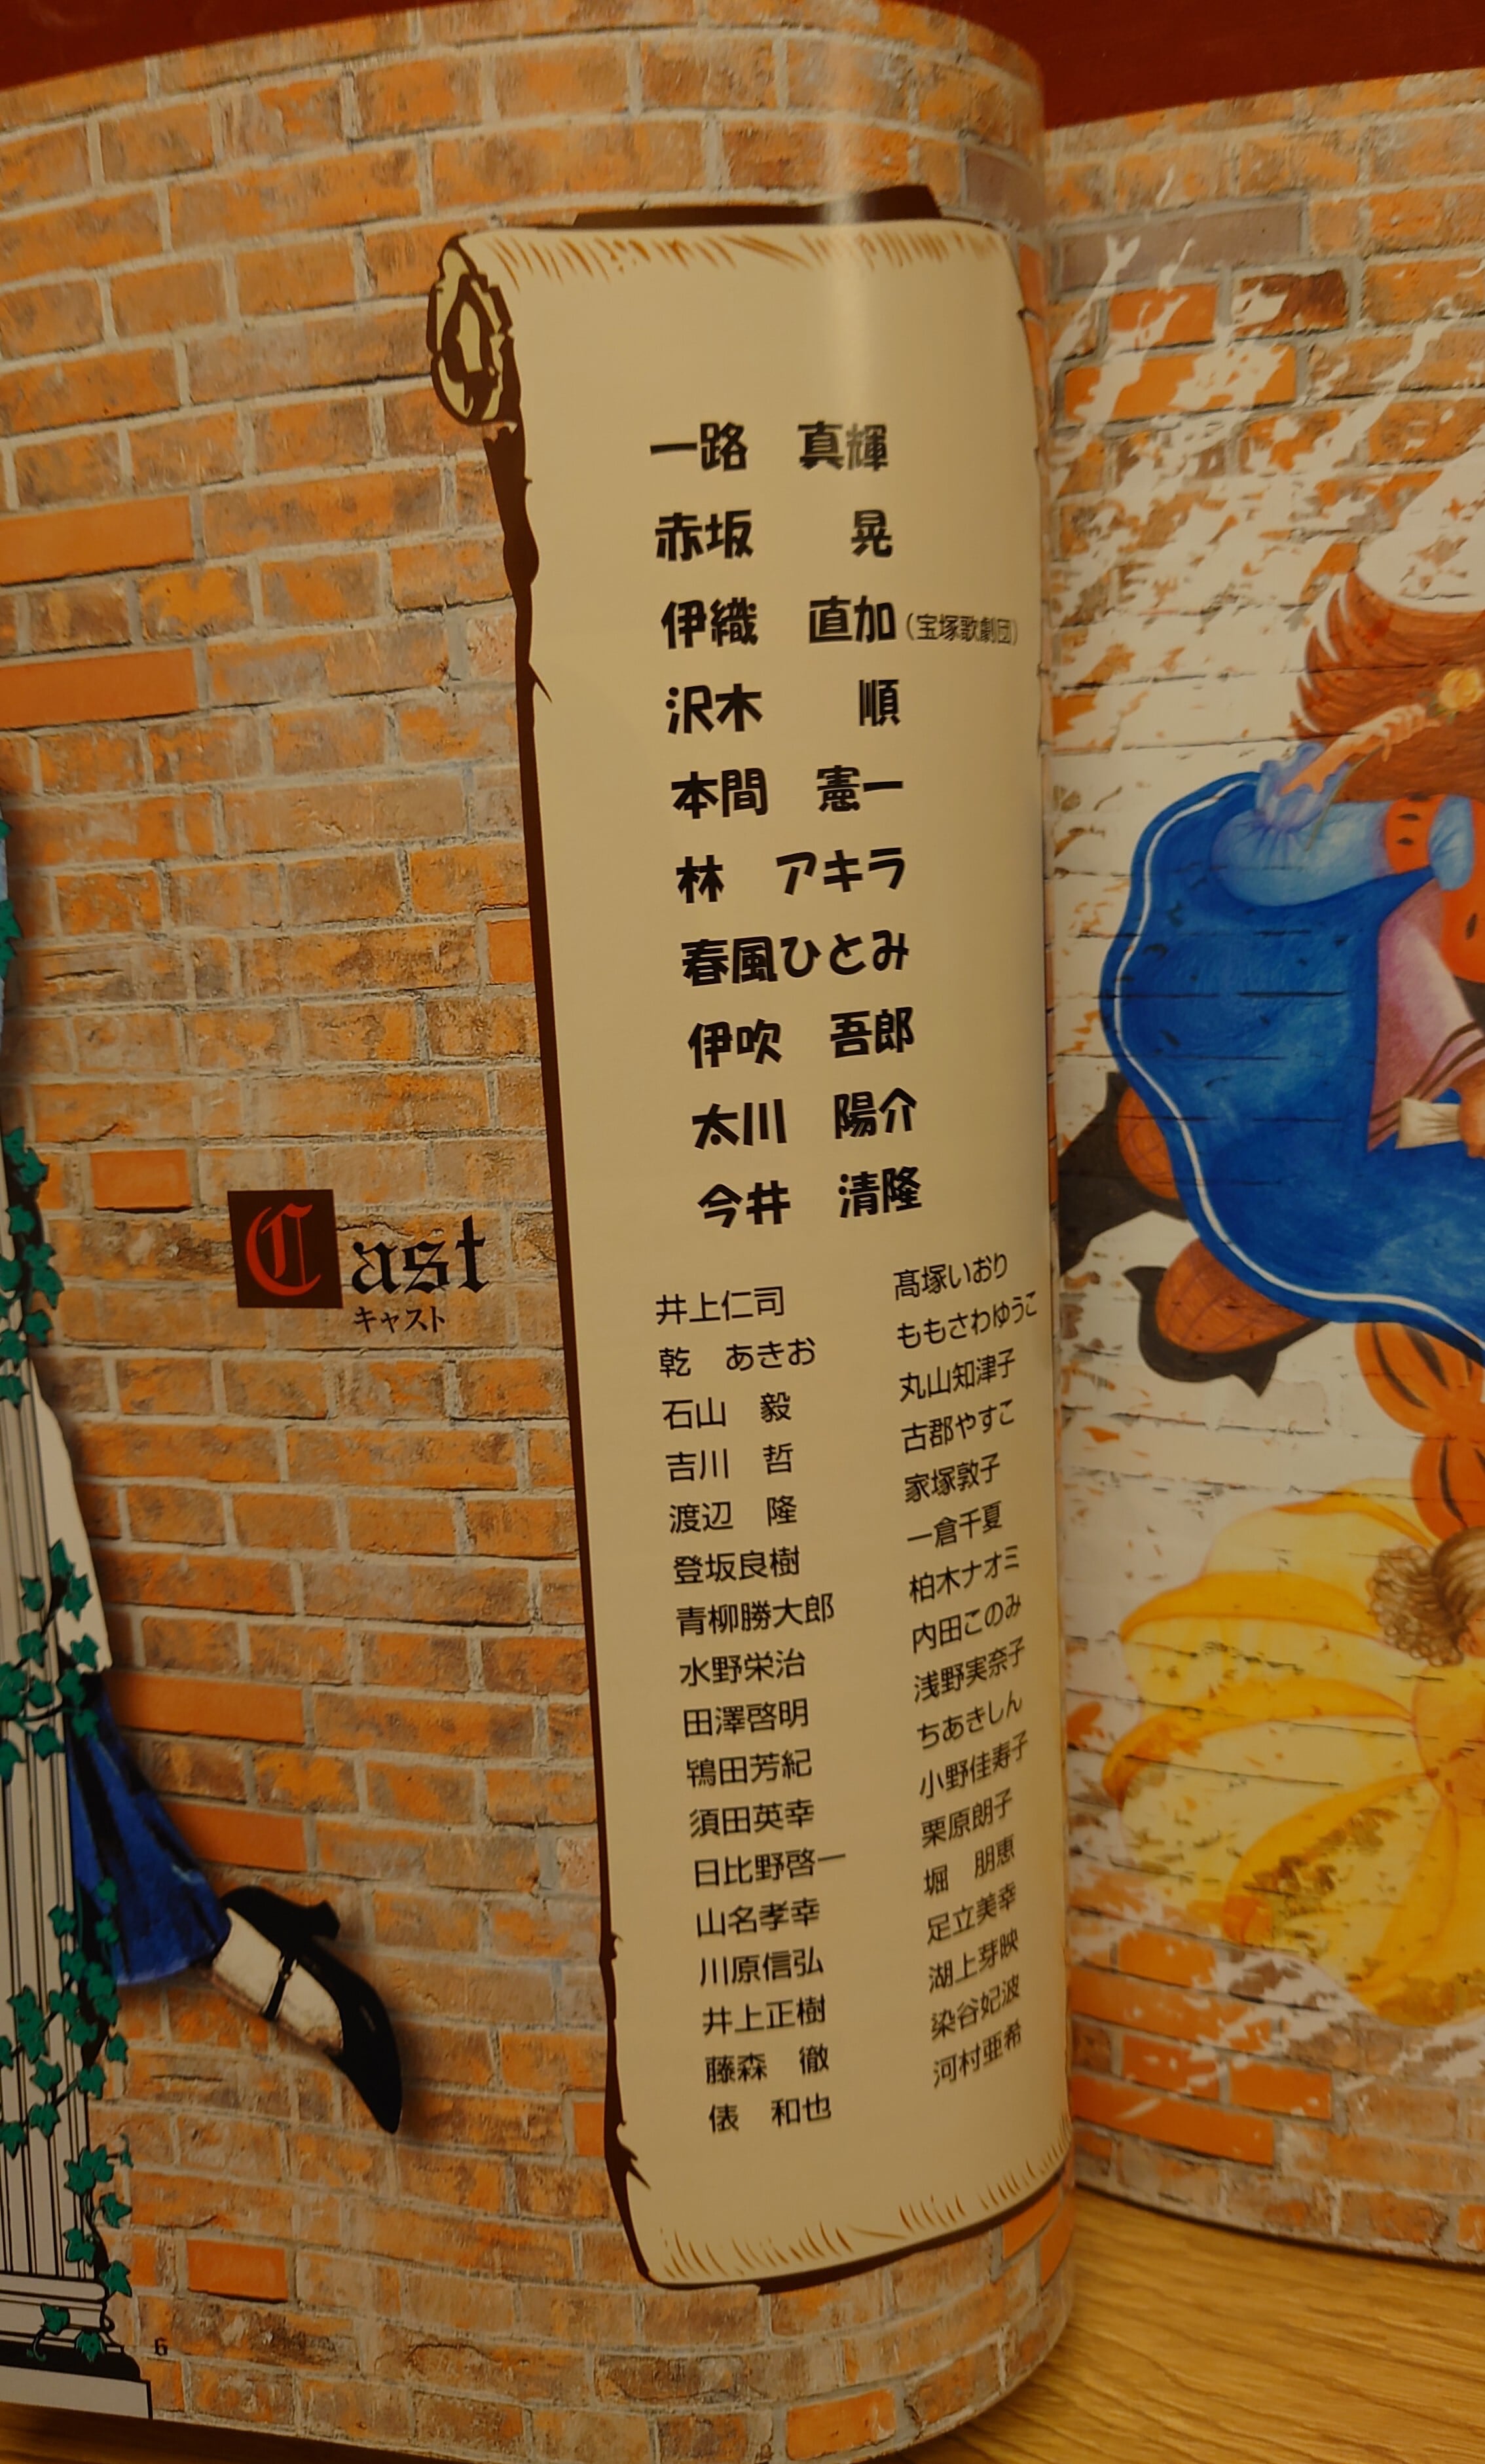 Cast
キャスト
一路 真輝
赤坂 晃
伊織 直加(宝塚歌劇団)
沢木 順
本間 憲一
林 アキラ
春風ひとみ
伊吹 吾郎
太川 陽介
今井 清隆
井上仁司
乾 あきお
石山 毅
吉川 哲
渡辺 隆
登坂良樹
青柳勝大郎
水野栄治
田澤啓明
鴇田芳紀
須田英幸
日比野啓一
山名孝幸
川原信弘
井上正樹
藤森 徹
俵 和也
髙塚いおり
ももさわゆうこ
丸山知津子
古郡やすこ
家塚敦子
一倉千夏
柏木ナオミ
内田このみ
浅野実奈子
ちあきしん
小野佳寿子
栗原朗子
堀 朋恵
足立美幸
湖上芽映
染谷妃波
河村亜希
6